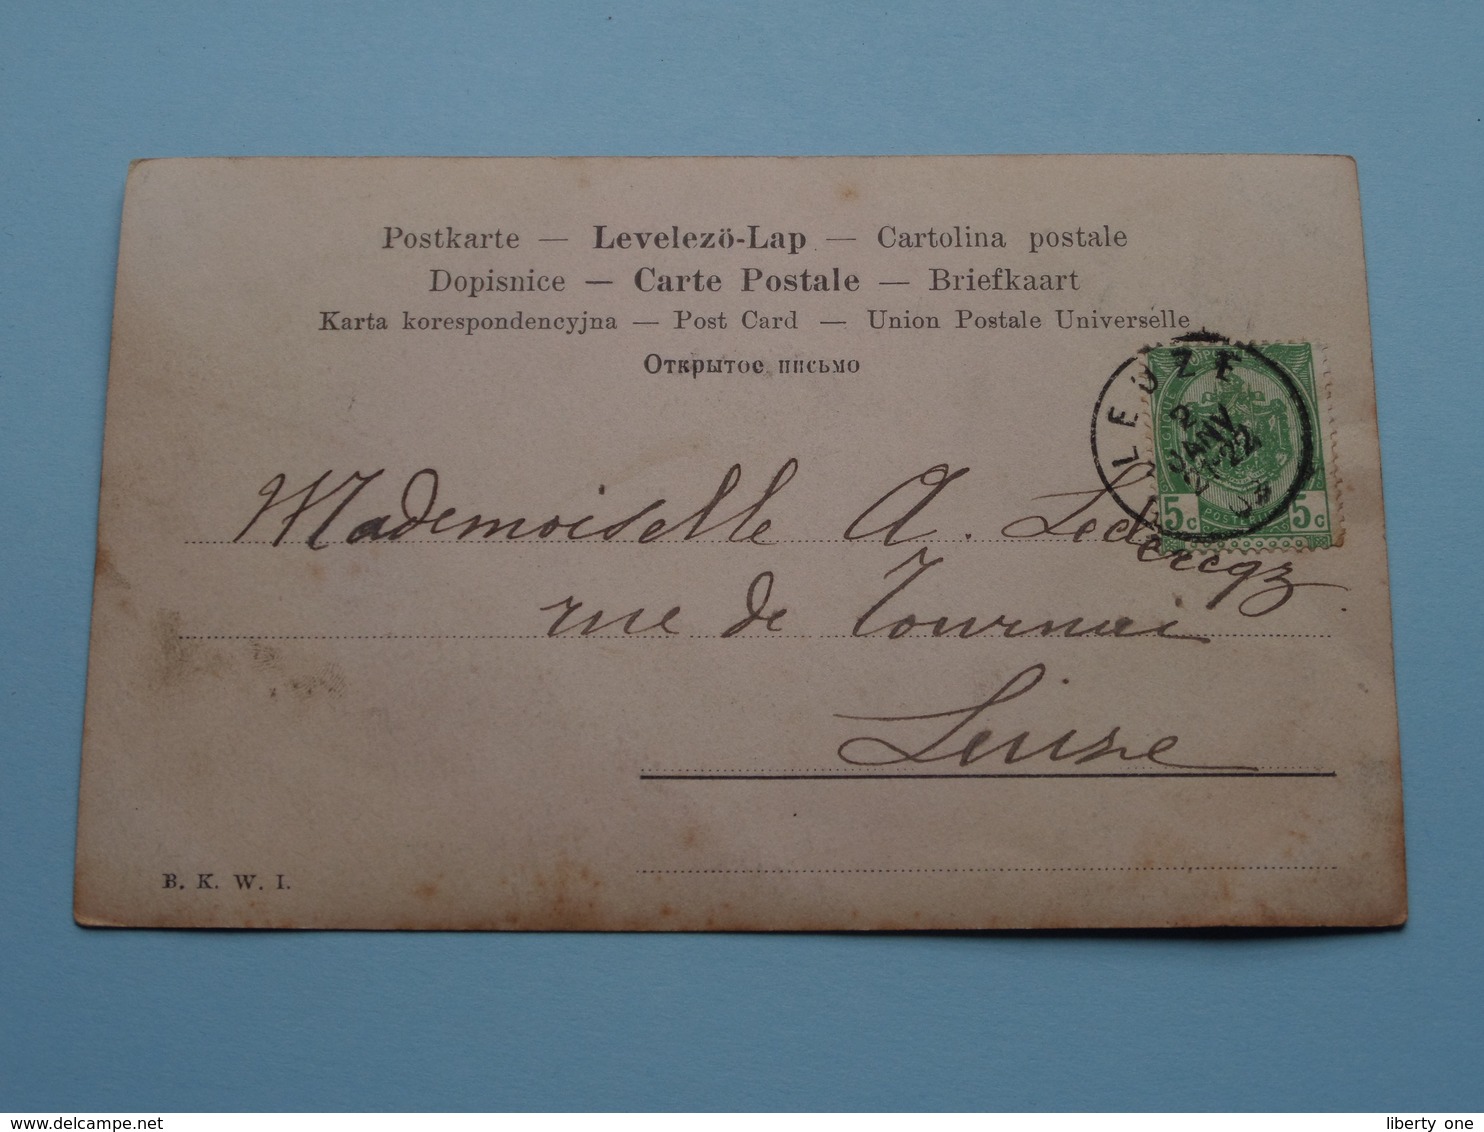 Postkarte — Levelezö-Lap — Cartolina postale
Dopisnice — Carte Postale — Briefkaart
Karta korespondencyjna — Post Card — Union Postale Universelle
Открытое письмо
LEUZE
2
JANV
22
BELGIQUE
5c POSTERIJ 5c
Mademoiselle A. Leclercqz
rue de Tournai
Leuze
B. K. W. I.
delcampe.net
liberty one